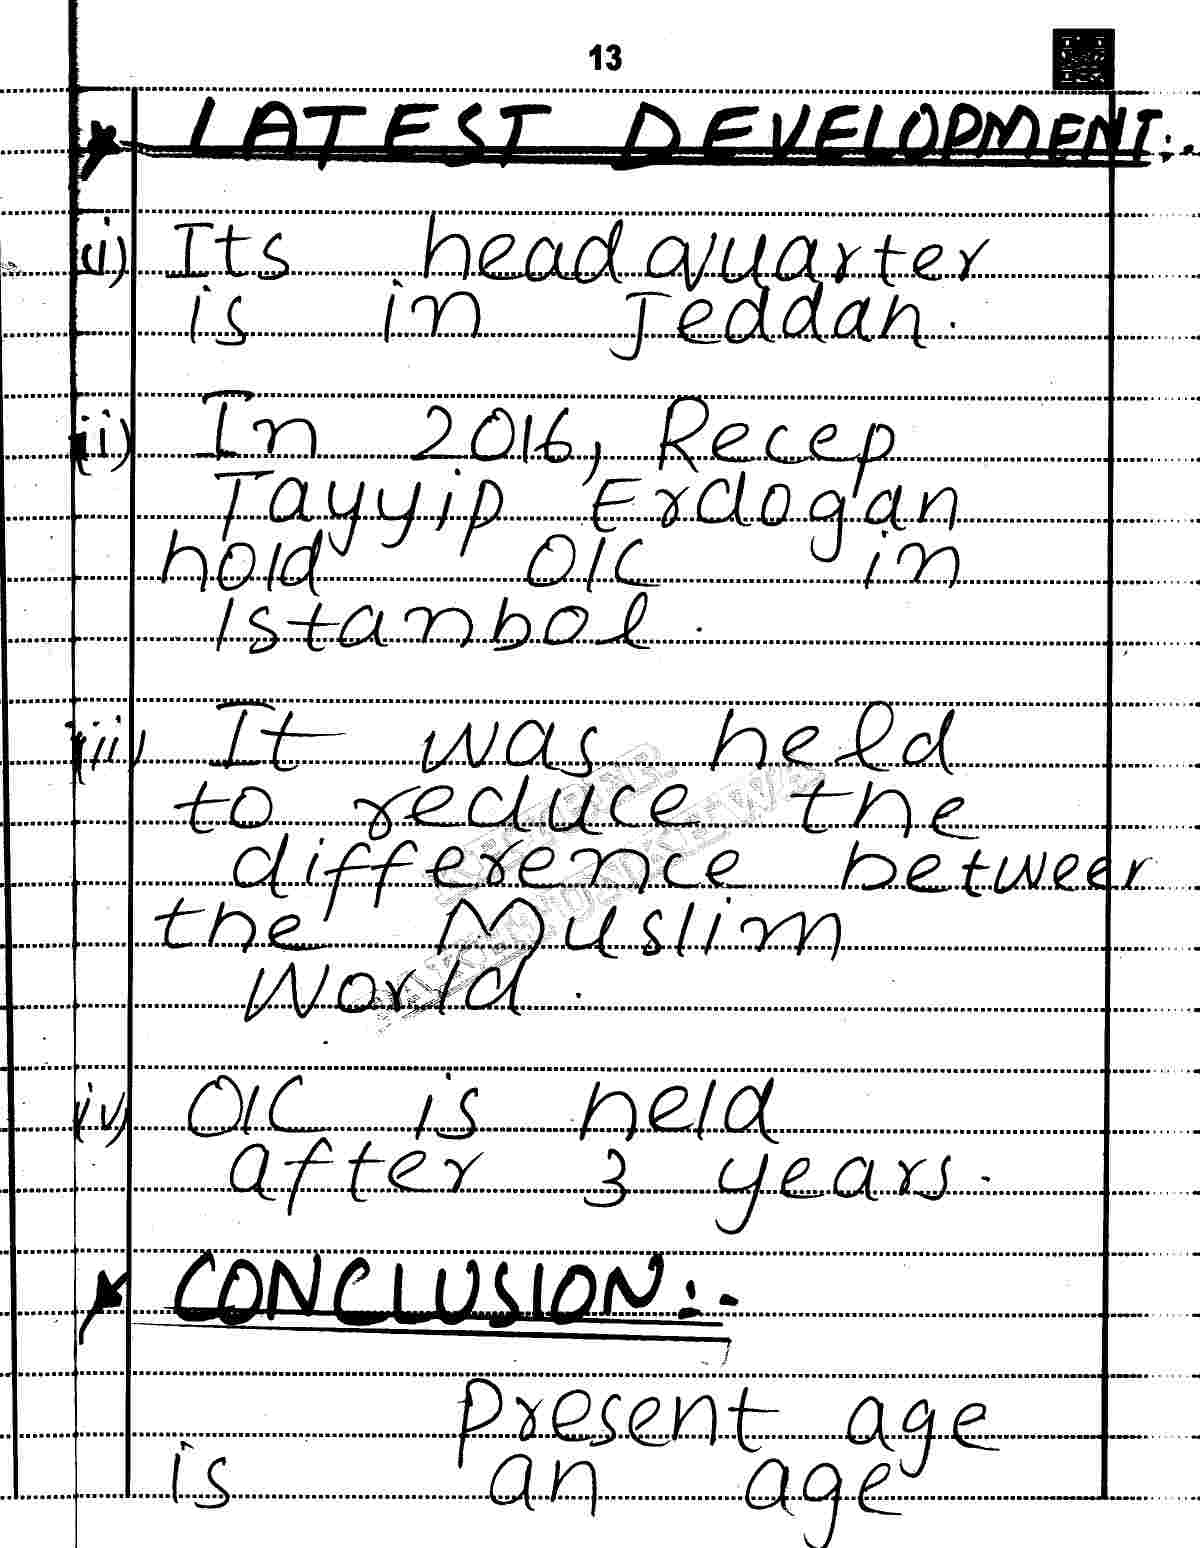 13
LATEST DEVELOPMENT:-
(i) Its headquarter
is in Jeddah.
(ii) In 2016, Recep
Tayyip Erdogan
hold OIC in
Istanbol.
iii) It was held
to reduce the
difference between
the Muslim
World.
iv) OIC is held
after 3 years.
CONCLUSION:-
Present age
is an age